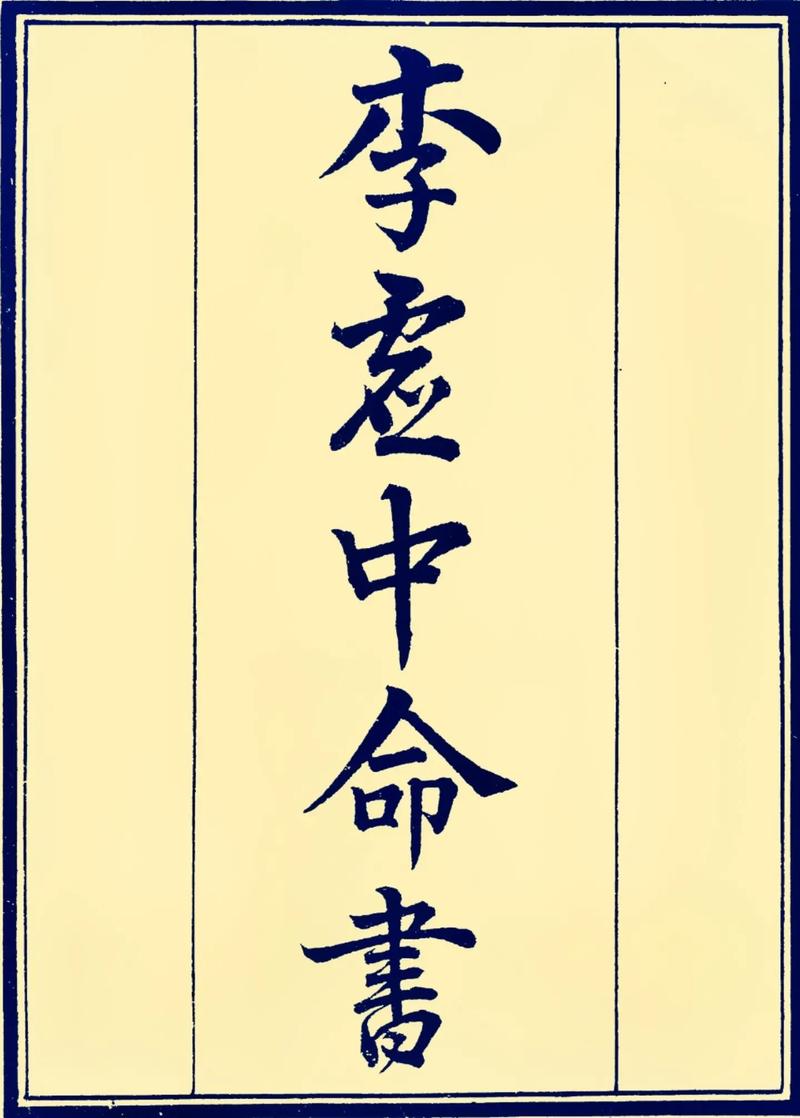 李虛中命書